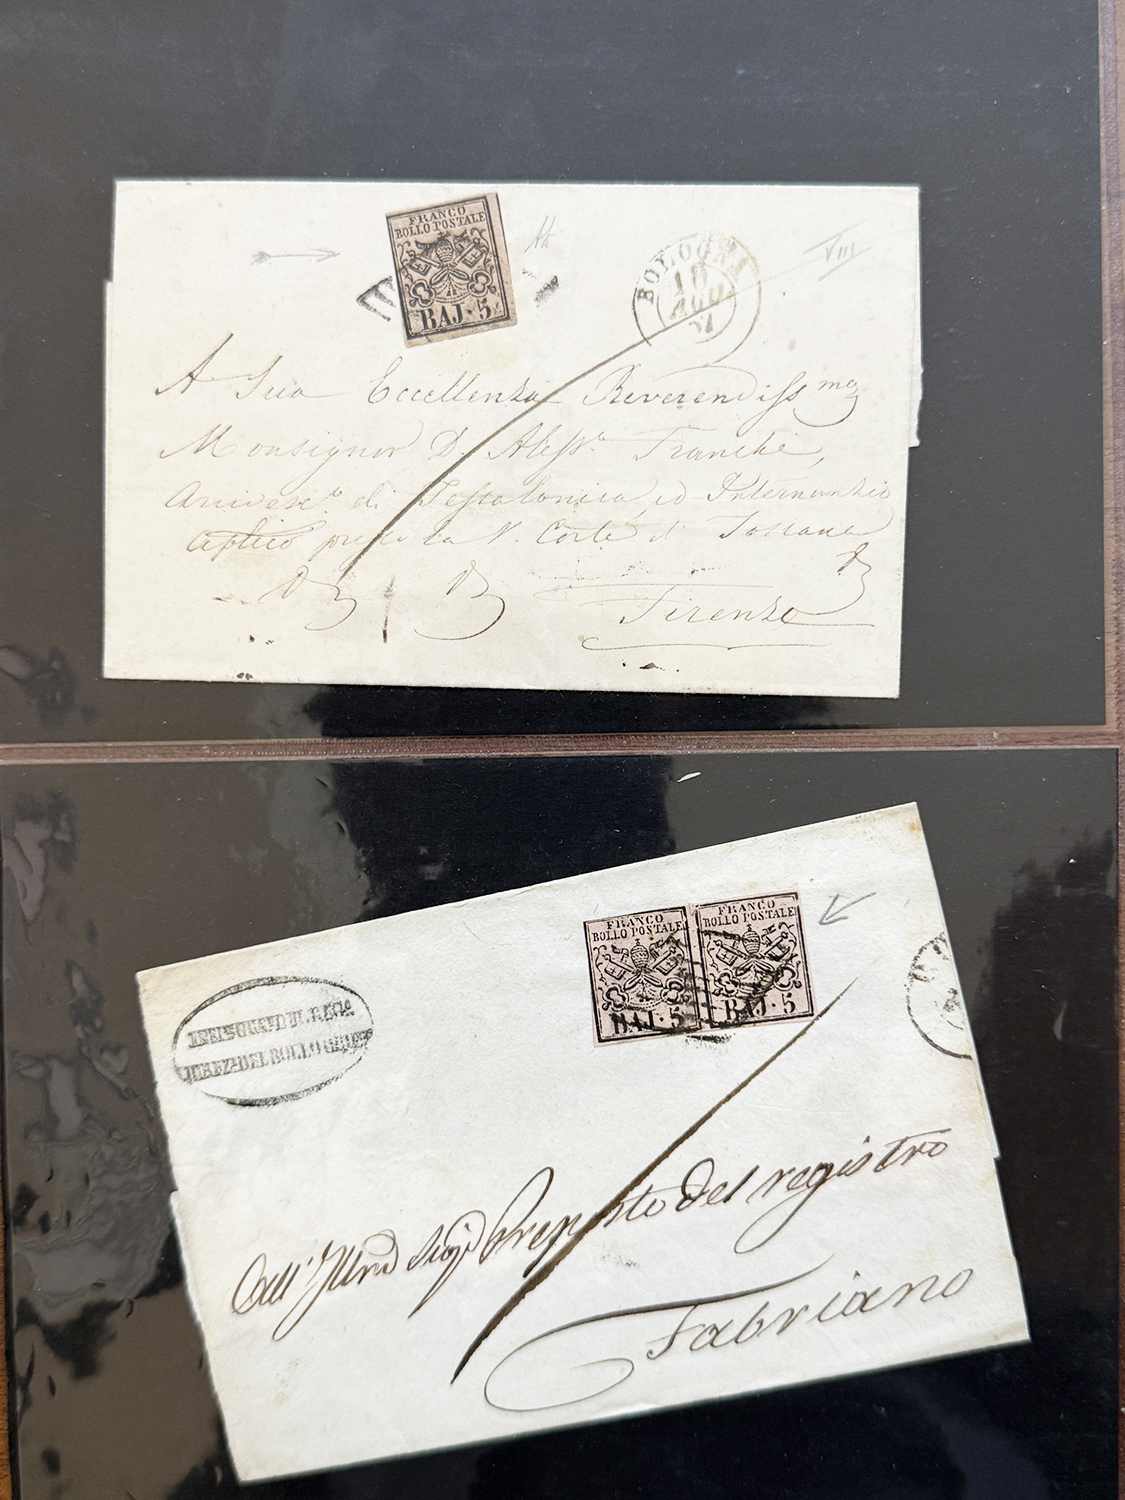 FRANCO
BOLLO POSTALE
BAJ. 5
BOLOGNA
10
AGO
57
VIII
A Sua Eccellenza Reverendiss.ma
Monsignor D. Aless.o Franchi,
Arcivesc.o di Tessalonica, ed Internunzio
Aplico presso la I. Corte d' Toscana
Firenze
FRANCO
BOLLO POSTALE
BAJ. 5
FRANCO
BOLLO POSTALE
BAJ. 5
DEL BOLLO
All' Illmo Sigr Preposto del registro
Fabriano